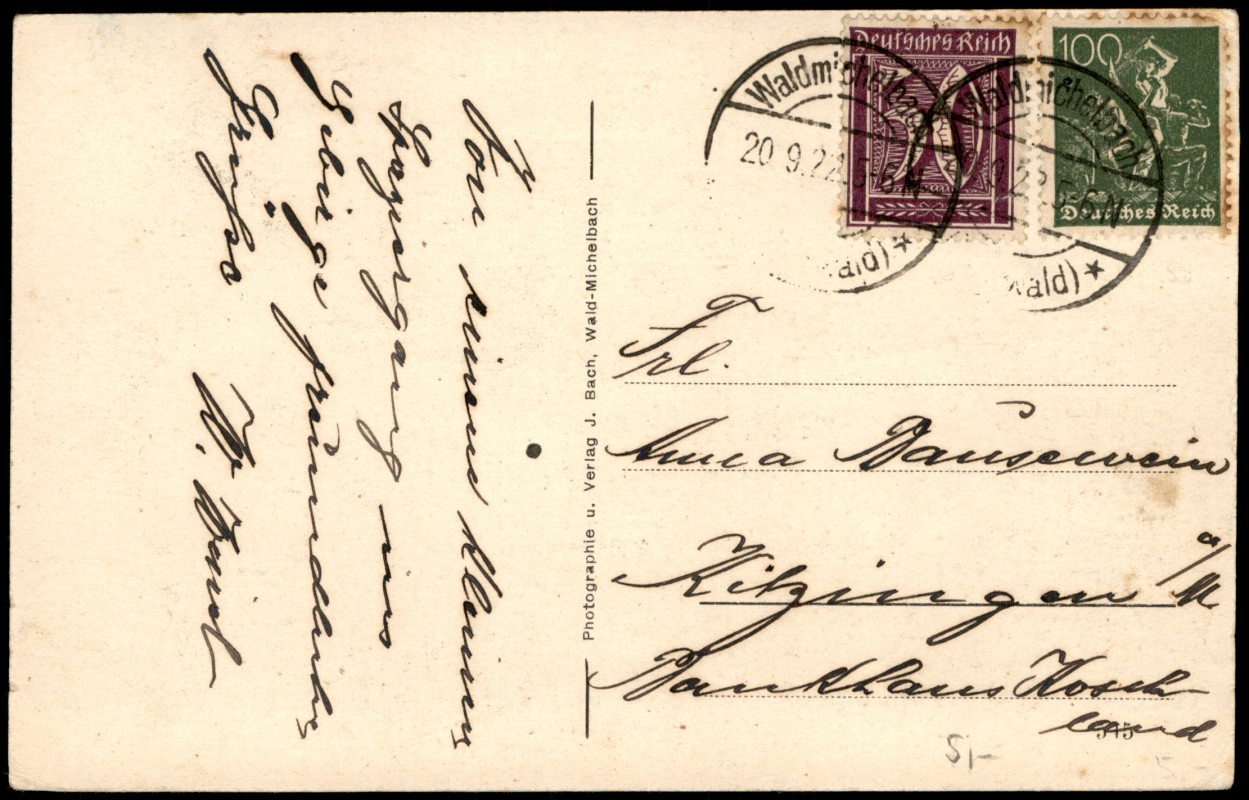 Von einem kleinen
Spaziergang ins
Gebirge freundliche
Grüße
W.
Photographie u. Verlag J. Bach, Wald-Michelbach
Deutsches Reich
100
Deutsches Reich
Waldmichelbach
20 9.22 5-6 N
wald) *
Waldmichelbach
22 5-6 N
wald) *
Frl.
Anna Bausewein
Kitzingen a/M
Bankhaus
land
545
5,-
5,-